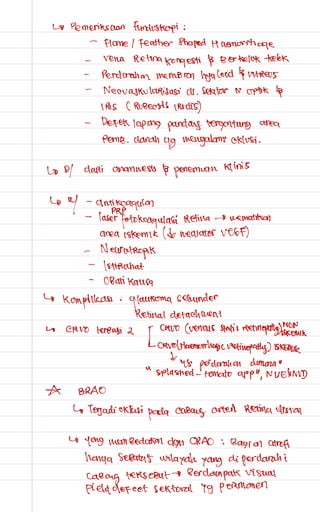 ↳ Pemeriksaan funduskopi :
- Flame / Feather Shaped Haemorrhage
- Vena Retina kongesti & Berkelok-kelok
- Perdarahan membran hyaloid & vitreus
- Neovaskularisasi di. sekitar N optik &
IRIS (Rubeosis Iridis)
- Defek lapang pandang tergantung area
Pemb. darah yg mengalami oklusi.
↳ D/ dari anamnesis & penemuan klinis
↳ R/ - antikoagulan
- laser PRP fotokoagulasi Retina → mematikan
area iskemik (↓ mediator VEGF)
- Neurotropik
- Istirahat
- Obati kausa
↳ Komplikasi : glaukoma sekunder
Retinal detachment
↳ CRVO terbagi 2 CRVO (venous stasis Retinopathy) NON ISKEMIK
CRVO (Haemorrhagic Retinopathy) ISKEMIK
↳ ys perdarahan dimana"
" splashed - tomato app", NVE & NVD
☆ BRAO
↳ Terjadi oklusi pada cabang arteri Retina distal
↳ yang membedakan dgn CRAO : Bagian arteri
hanya sebatas wilayah yang diperdarahi
cabang tersebut → Berdampak visual
field defect sektoral yg permanen